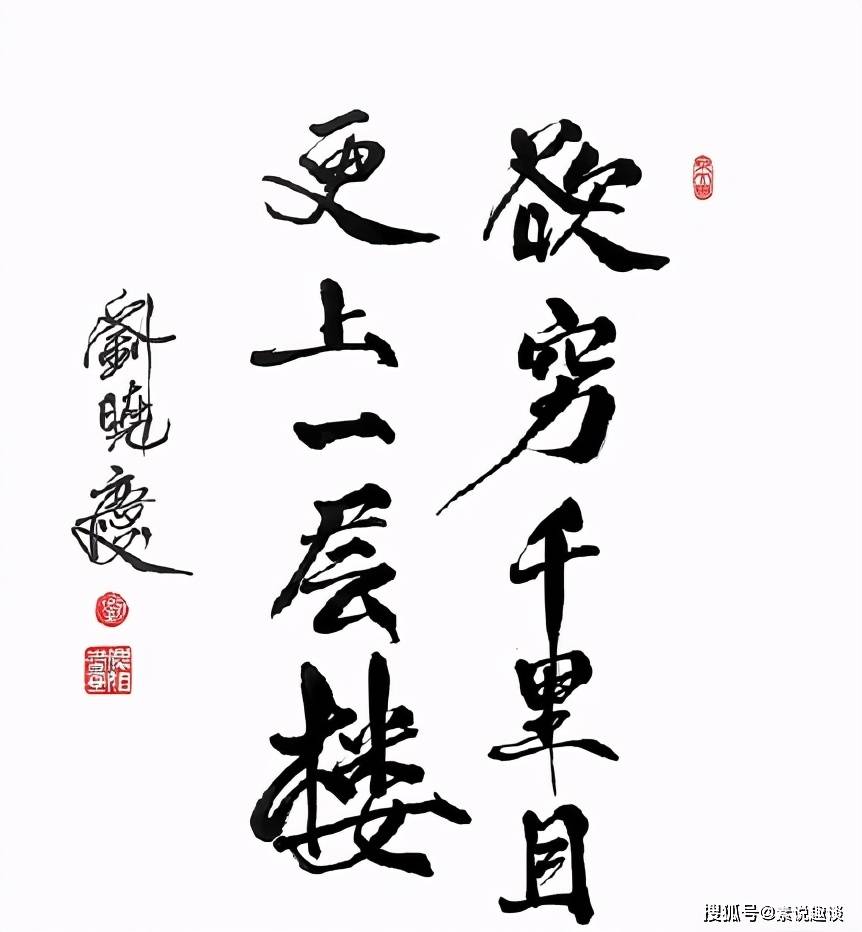 欲穷千里目
更上一层楼
劉曉慶
搜狐号@素说趣谈